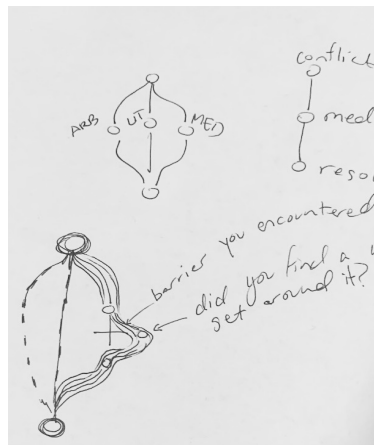 conflict
ARB
UT
MED
barrier you encountered
did you find a
get around it?